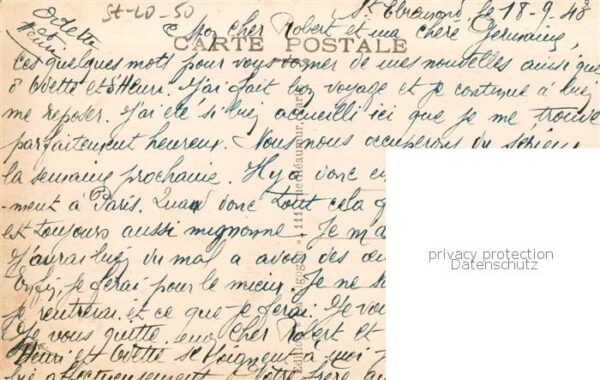 Odette
Henri
St-Lo-50
St Ebremond, le 18-9-48
Mon cher Robert et ma chère Germaine,
CARTE POSTALE
Ces quelques mots pour vous donner de mes nouvelles ainsi que
d'Odette et d'Henri. J'ai fait bon voyage et je continue à bien
me reposer. J'ai été si bien accueilli ici que je me trouve
parfaitement heureux. Nous nous occuperons du
la semaine prochaine. Il y a donc
ment à Paris. Quand donc tout cela
est toujours aussi mignonne. Je
J'aurai bien du mal a avoir des
Enfin je ferai pour le mieux. Je ne
je rentrerai et ce que je ferai. Je
Je vous quitte mon cher Robert et
Henri et Odette se joignent à moi
affectueusement Votre frère
111, rue Réaumur, Paris
privacy protection
Datenschutz